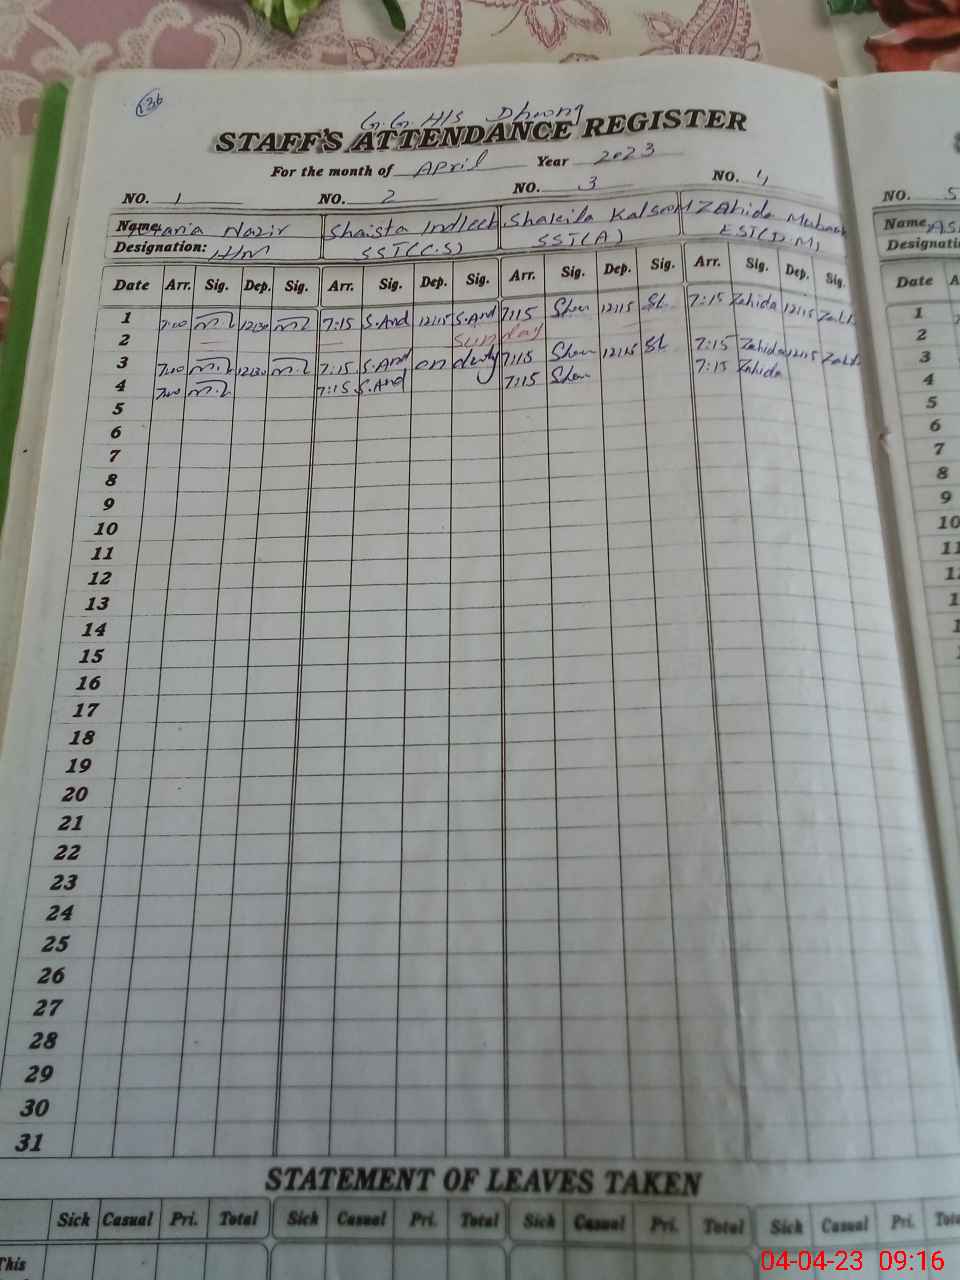 136
G.G.H/S Dhoong
STAFF'S ATTENDANCE REGISTER
For the month of April Year 2023
NO. 1 NO. 2 NO. 3 NO. 4 NO. 5
Name Nazir Shaista Shakila Kalsoom Zahida Name
Designation: H/M SST(C.S) SST(A) EST(D.M) Designati
Date Arr. Sig. Dep. Sig. Arr. Sig. Dep. Sig. Arr. Sig. Dep. Sig. Arr. Sig. Dep. Sig. Date A
1 7:00 12:30 7:15 S.And 12:15 S.And 7:15 12:15 Sh 7:15 Zahida 12:15 1
2 Sunday 2
3 7:00 12:30 7:15 S.And on duty 7:15 12:15 Sh 7:15 Zahida 12:15 3
4 7:00 7:15 S.And 7:15 7:15 Zahida 4
5 5
6 6
7 7
8 8
9 9
10 10
11 11
12
13
14
15
16
17
18
19
20
21
22
23
24
25
26
27
28
29
30
31
STATEMENT OF LEAVES TAKEN
Sick Casual Pri. Total Sick Casual Pri. Total Sick Casual Pri. Total Sick Casual Pri. Tot
This
04-04-23 09:16